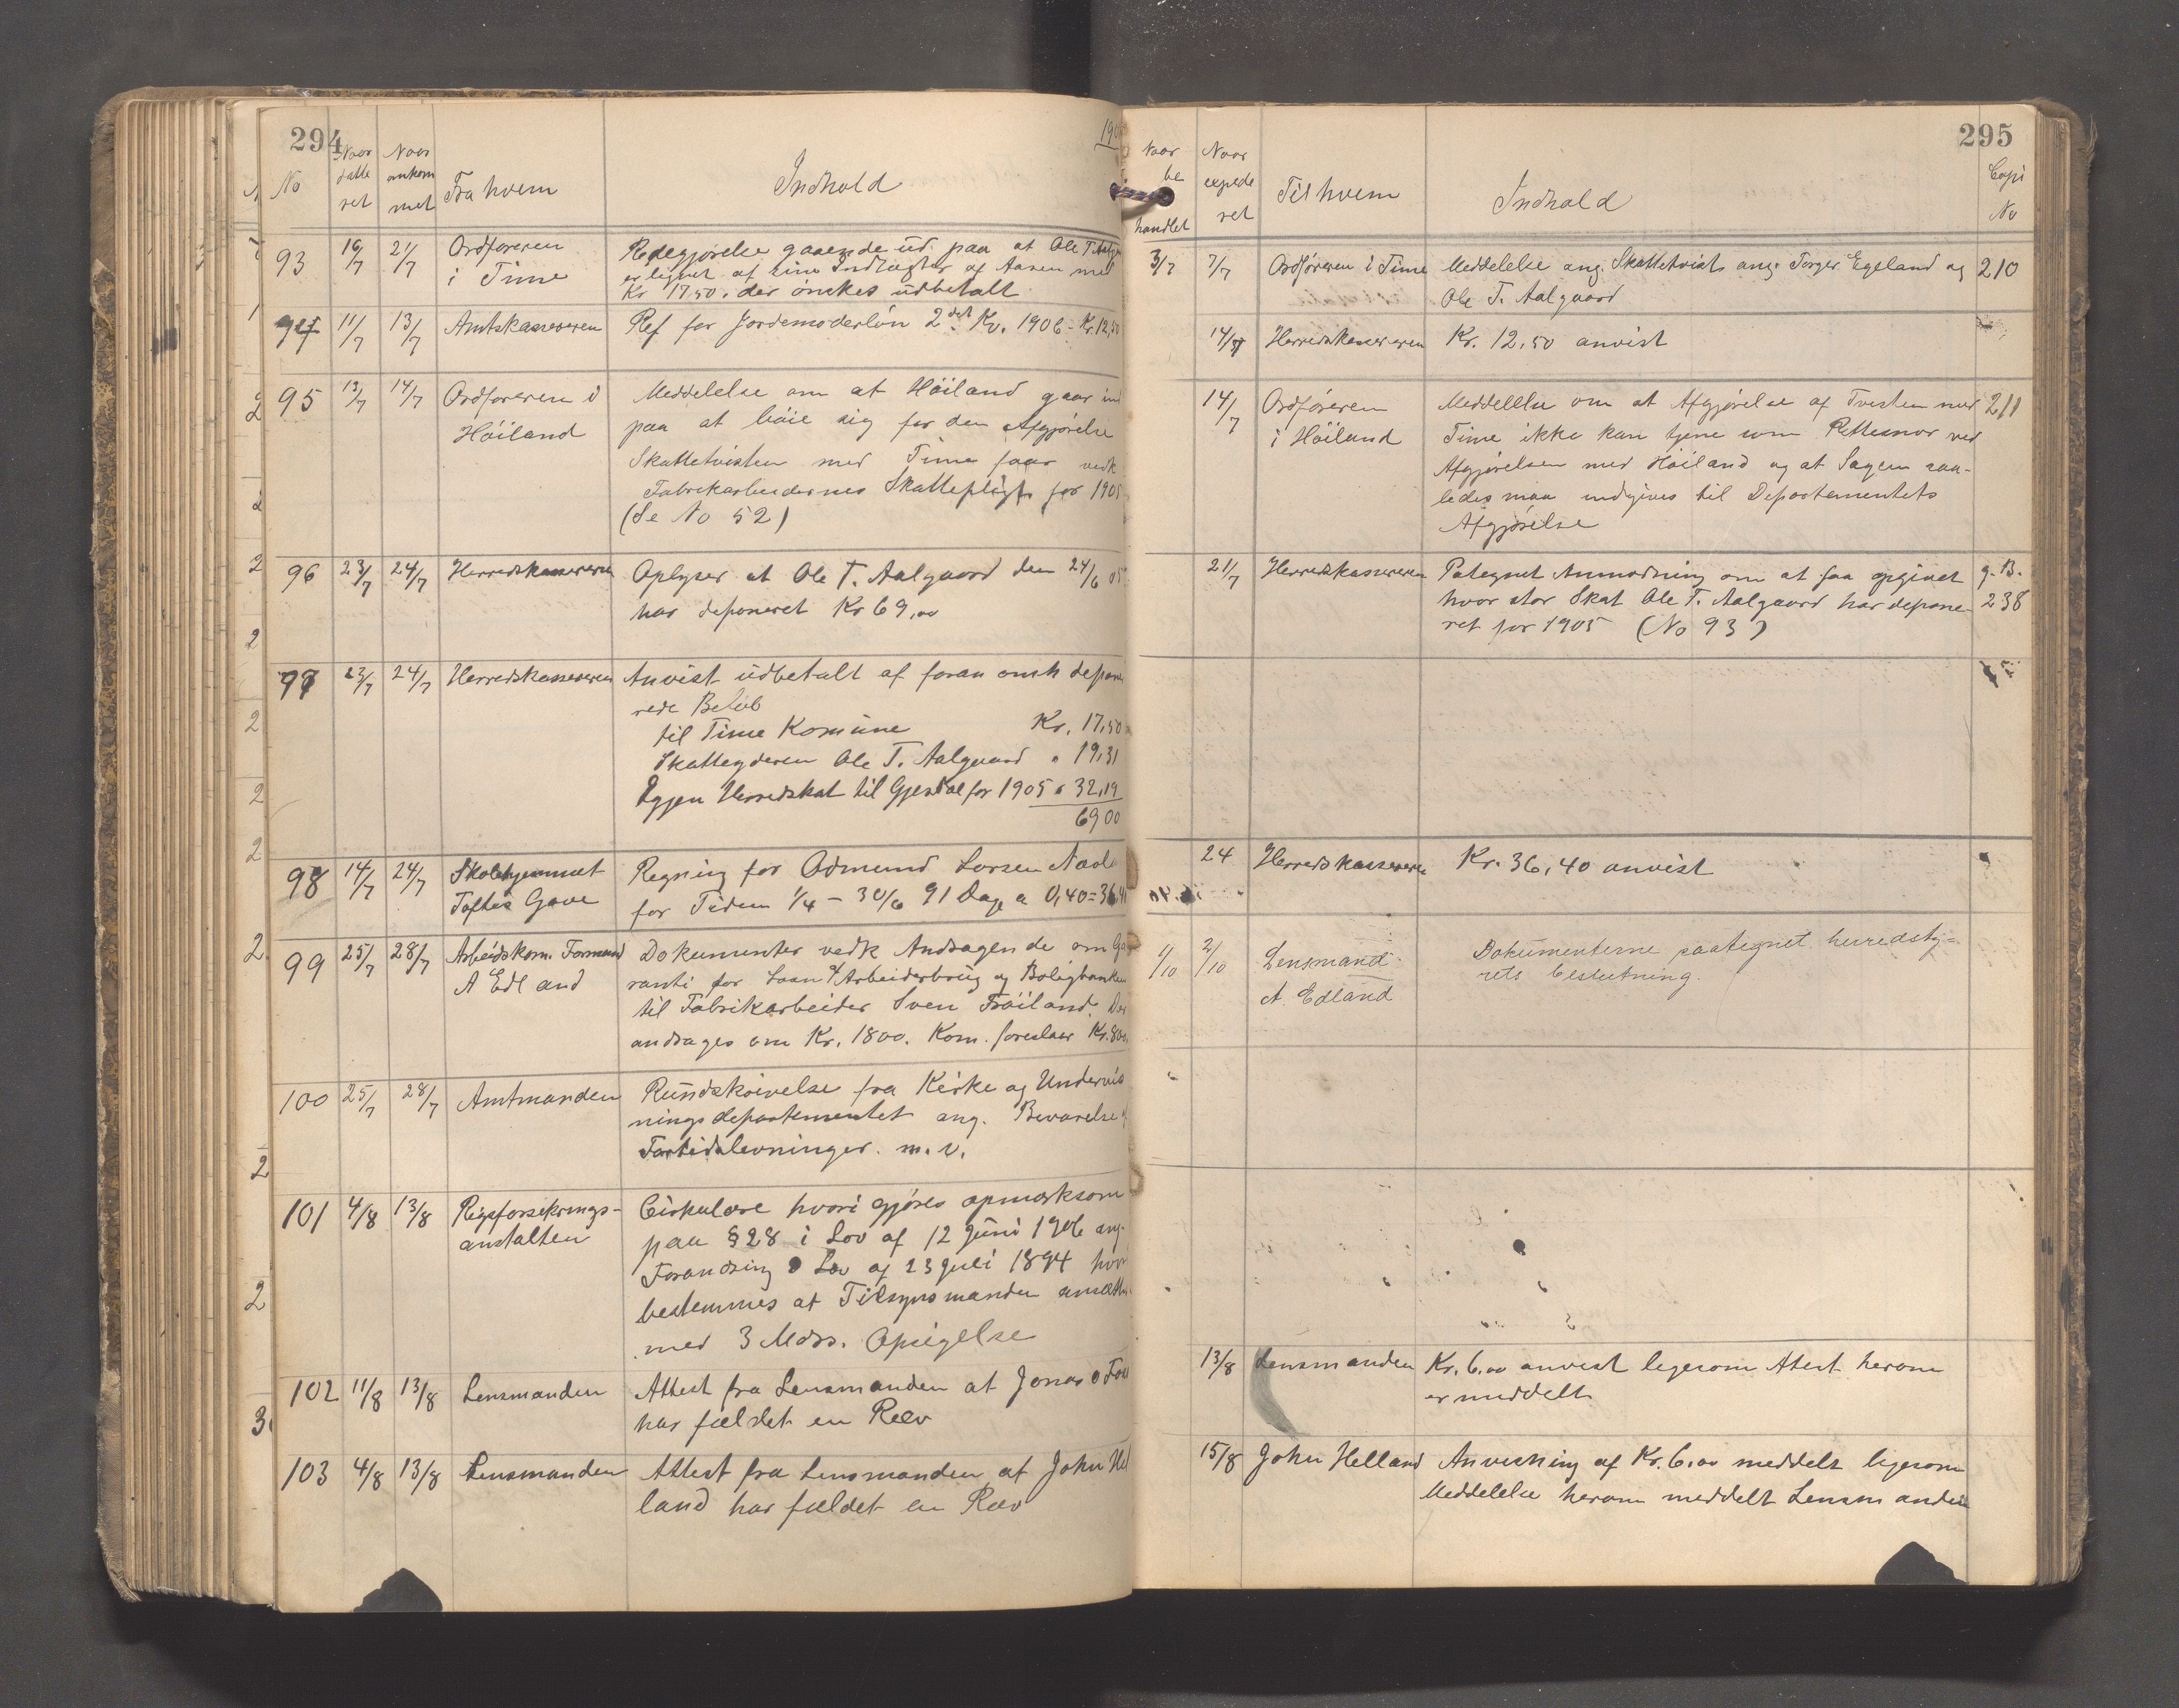 294
190
No
Naar datte ret
Naar ankom met
Fra hvem
Indhold
93 19/7 21/7 Ordføreren i Time
Redegjørelse gaaende ud paa at Ole T. Aalg
er lignet af sine Indtægter af Aanen med
Kr 17.50. der ønskes udbetalt
94 11/7 13/7 Amtskassereren
Ref for Jordemoderløn 2det Kv. 1906 = Kr. 12,50
95 13/7 14/7 Ordføreren i Höiland
Meddelelse om at Höiland gaar ind
paa at böie sig for den Afgjörelse
Skattetvisten med Time faar vedk
Fabrikarbeidernes Skattepligt for 1905
(Se No 52)
96 23/7 24/7 Herredskassereren
Oplyser at Ole T. Aalgaard den 24/6 05
har deponeret Kr 69,00
97 23/7 24/7 Herredskassereren
Anvist udbetalt af foran omh depone
rede Beløb
til Time Komune Kr. 17,50
Skatteyderen Ole T. Aalgaard " 19,31
Egjen Herredskat til Gjesdal for 1905 " 32,19
6900
98 14/7 24/7 Skolehjemmet Toftes Gave
Regning for Odmund Larsen Nadl
for Tiden 1/4 - 30/6 91 Dage a 0,40 = 36,4
99 25/7 28/7 Arbeidskom. Formand A Edland
Dokumenter vedk Andragende om Ga
ranti for Laan i Arbeiderbrug og Boligbanken
til Fabrikarbeider Sven Fröiland. Der
andrages om Kr. 1800. Kom. foreslaar Kr. 800
100 25/7 28/7 Amtmanden
Rundskrivelse fra Kirke og Undervis
ningsdepartementet ang. Bevarelse
Fortidslevninger. m.v.
101 4/8 13/8 Rigsforsikrings-
anstalten
Cirkulære hvori gjöres opmærksom
paa § 28 i Lov af 12 Juni 1906 ang.
Forandring i Lov af 23 Juli 1894 hvor
bestemmes at Tilsynsmanden ansætte
med 3 Mdrs. Opsigelse
102 11/8 13/8 Lensmanden
Attest fra Lensmanden at Jonas O Fo
har fældet en Ræv
103 4/8 13/8 Lensmanden
Attest fra Lensmanden at John Hel
land har fældet en Ræv
295
Naar be handlet
Naar expede ret
Til hvem
Indhold
Copi No
3/7 7/7 Ordføreren i Time
Meddelelse ang. Skattetvists ang. Torger Egeland og
Ole T. Aalgaard
210
14/7 Herredskassereren
Kr. 12,50 anvist
14/7 Ordföreren i Höiland
Meddelelse om at Afgjörelse af Tvisten med
Time ikke kan tjene som Rettesnor ved
Afgjörelsen med Höiland og at Sagen saa-
ledes maa indgives til Departementets
Afgjörelse
211
21/7 Herredskassereren
Pategnet Anmodning om at faa opgivet
hvor stor Skat Ole T. Aalgaard har depone-
ret for 1905 (No 93)
g. B. 238
24 Herredskassereren
Kr. 36,40 anvist
1/10 2/10 Lensmand A. Edland
Dokumenterne paategnet herredsty=
rets beslutning
13/8 Lensmanden
Kr. 6.00 anvist ligesom Atest herom
er meddelt
15/8 John Helland
Anvisning af Kr. 6.00 meddelt ligesom
Meddelelse herom meddelt Lensmanden